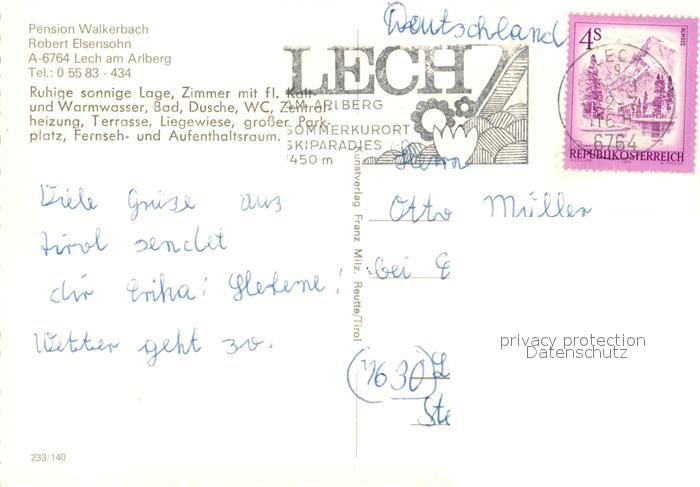 Pension Walkerbach
Robert Elsensohn
A-6764 Lech am Arlberg
Tel.: 0 55 83 - 434
Ruhige sonnige Lage, Zimmer mit fl. Kalt-
und Warmwasser, Bad, Dusche, WC, Zentral-
heizung, Terrasse, Liegewiese, großer Park-
platz, Fernseh- und Aufenthaltsraum.
Deutschland
LECH
AM ARLBERG
SOMMERKURORT
SKIPARADIES
1450 m
4S
ALMSEE
LECH
6764
REPUBLIK ÖSTERREICH
Viele Grüße aus
Tirol sendet
dir Erika!
Wetter geht so.
Kunstverlag Franz Milz, Reutte/Tirol
Herrn
Otto Müller
bei
privacy protection
Datenschutz
Ste
233/140